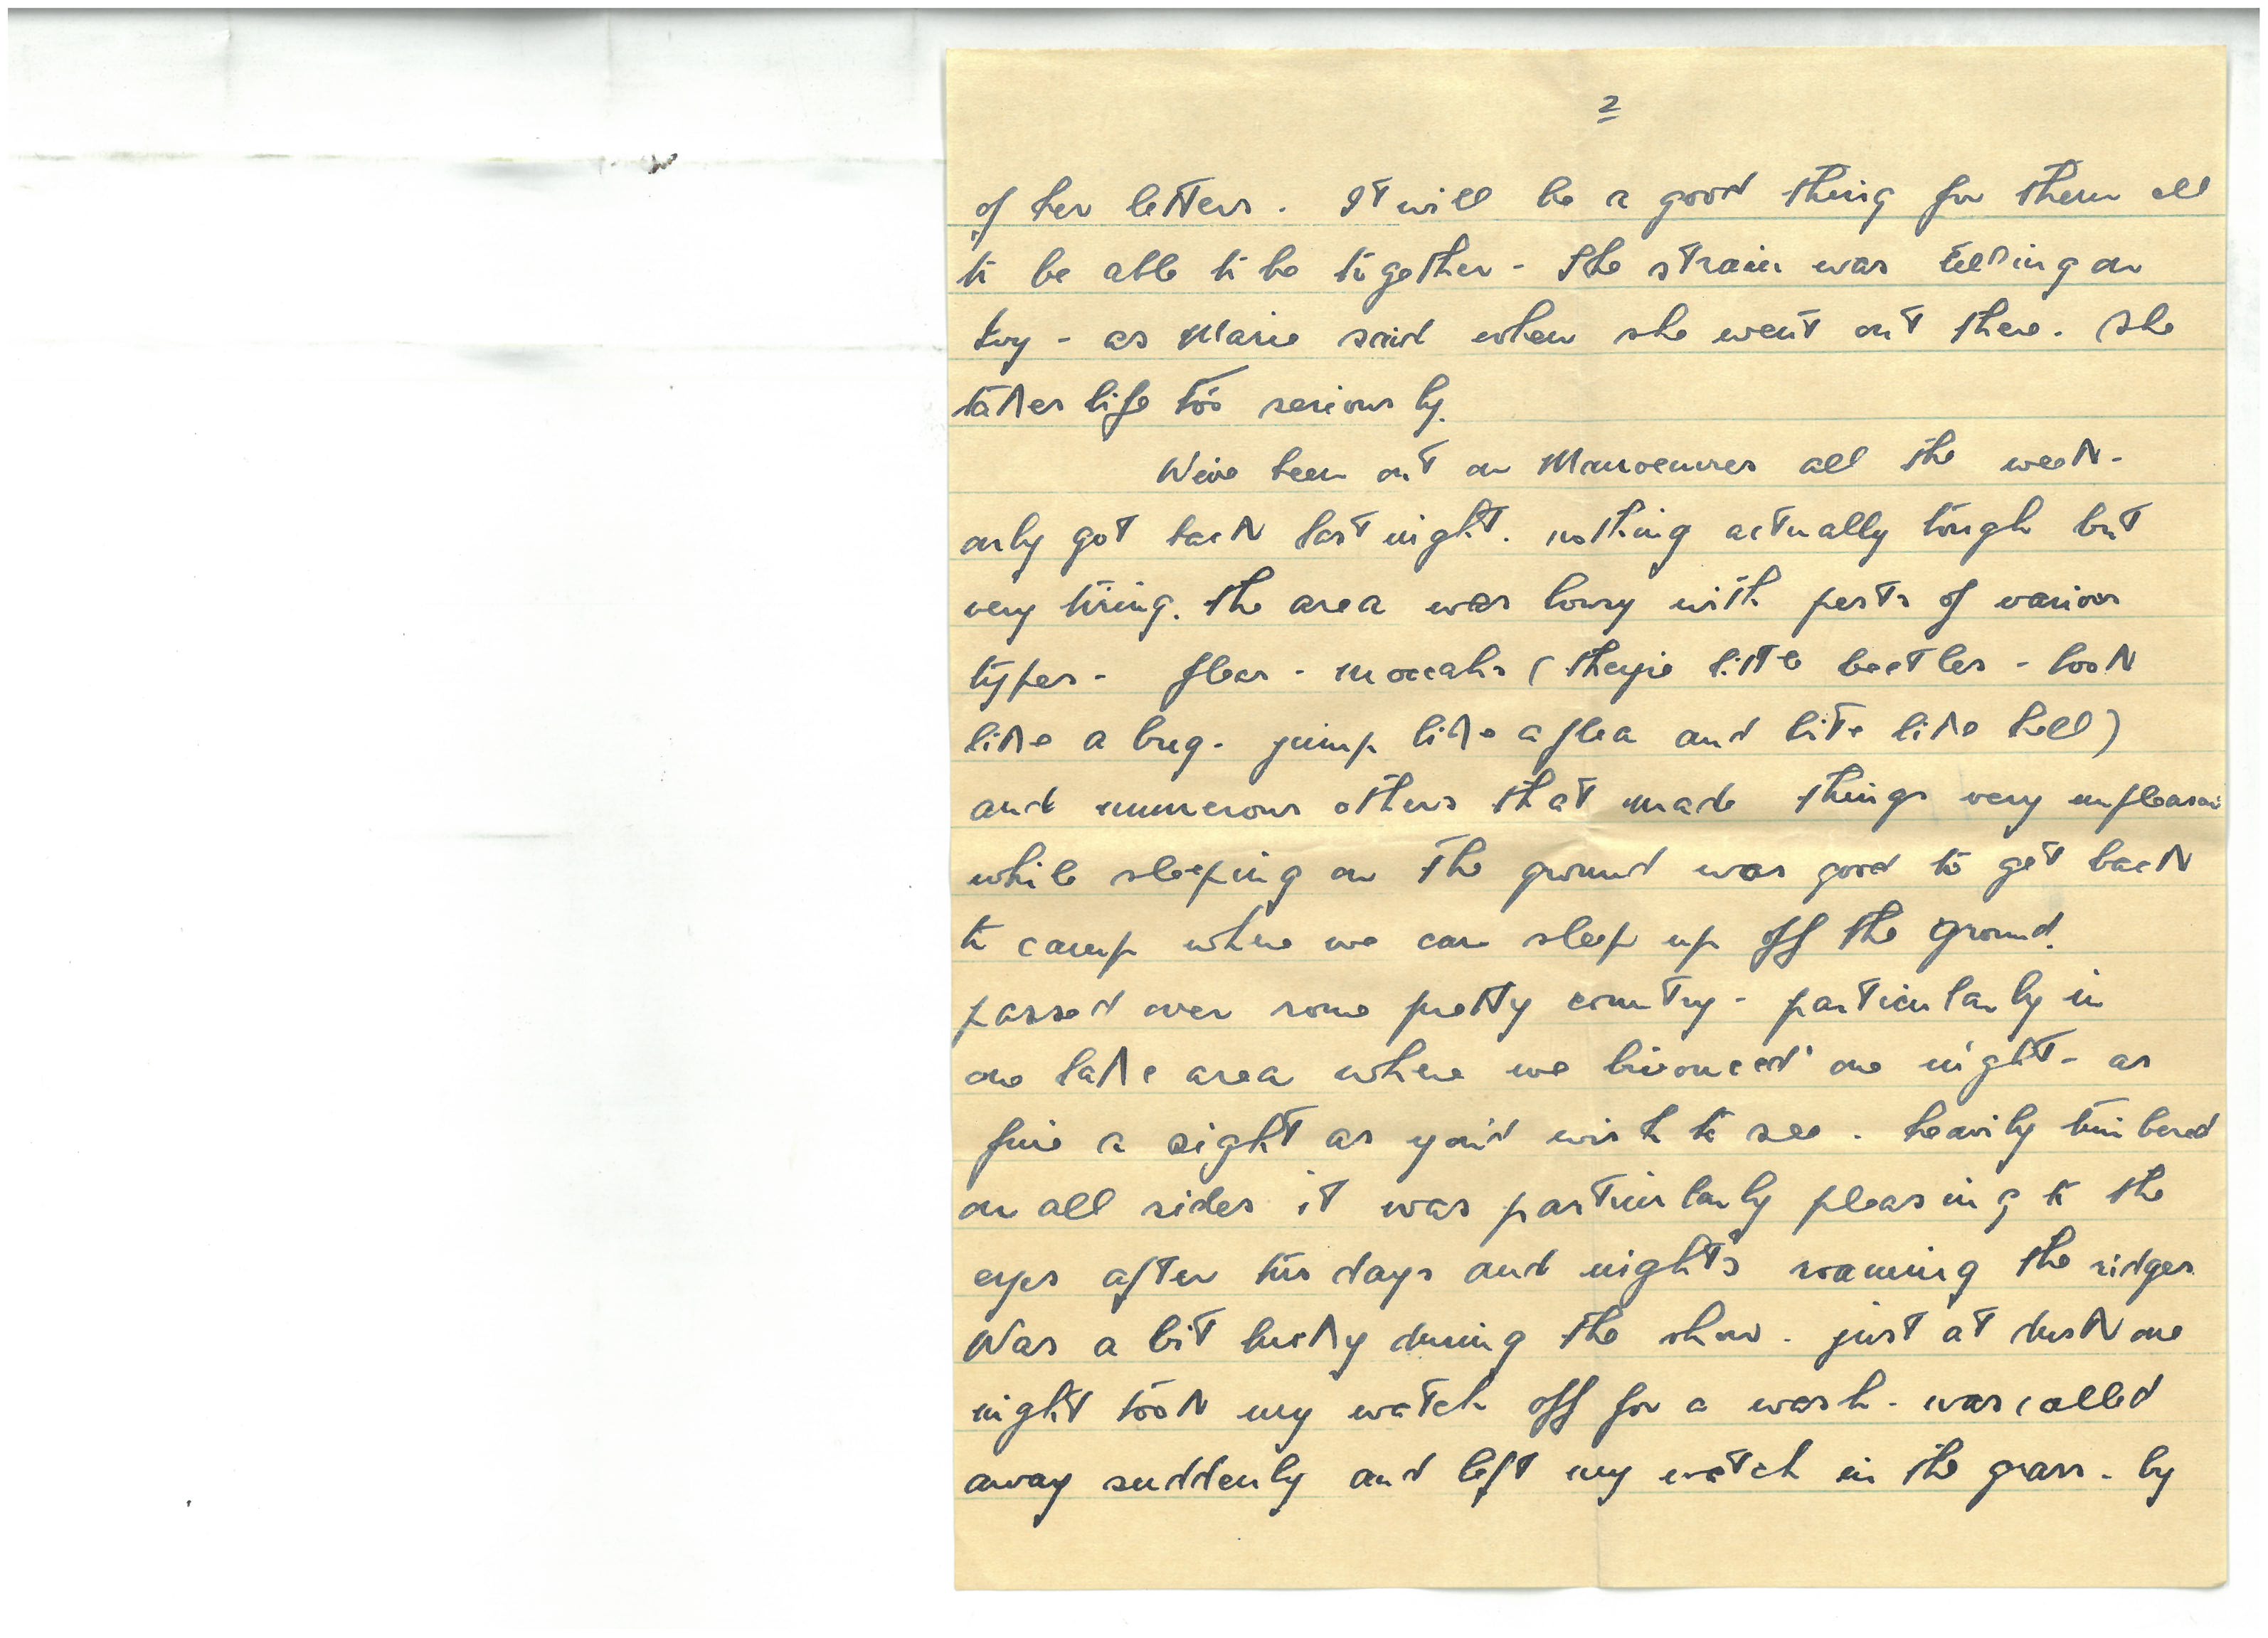 2
of her letters. It will be a good thing for them all
to be able to be together - the strain was telling on
Ivy - as Marie said when she went out there. She
takes life too seriously.
We've been out on Manoeuvres all the week -
only got back last night. nothing actually tough but
very tiring. the area was lousy with pests of various
types - fleas - (they're little beetles - look
like a bug - jump like a flea and bite like hell)
and numerous others that made things very unpleasan
while sleeping on the ground was good to get back
to camp where we can sleep up off the ground.
passed over some pretty country - particularly in
one lake area where we one night - as
fine a sight as you'd wish to see. heavily timbered
on all sides it was particularly pleasing to the
eyes after days and nights roaming the ridges
Was a bit lucky during the show. just at dusk one
night took my watch off for a wash - was called
away suddenly and left my watch in the grass - by